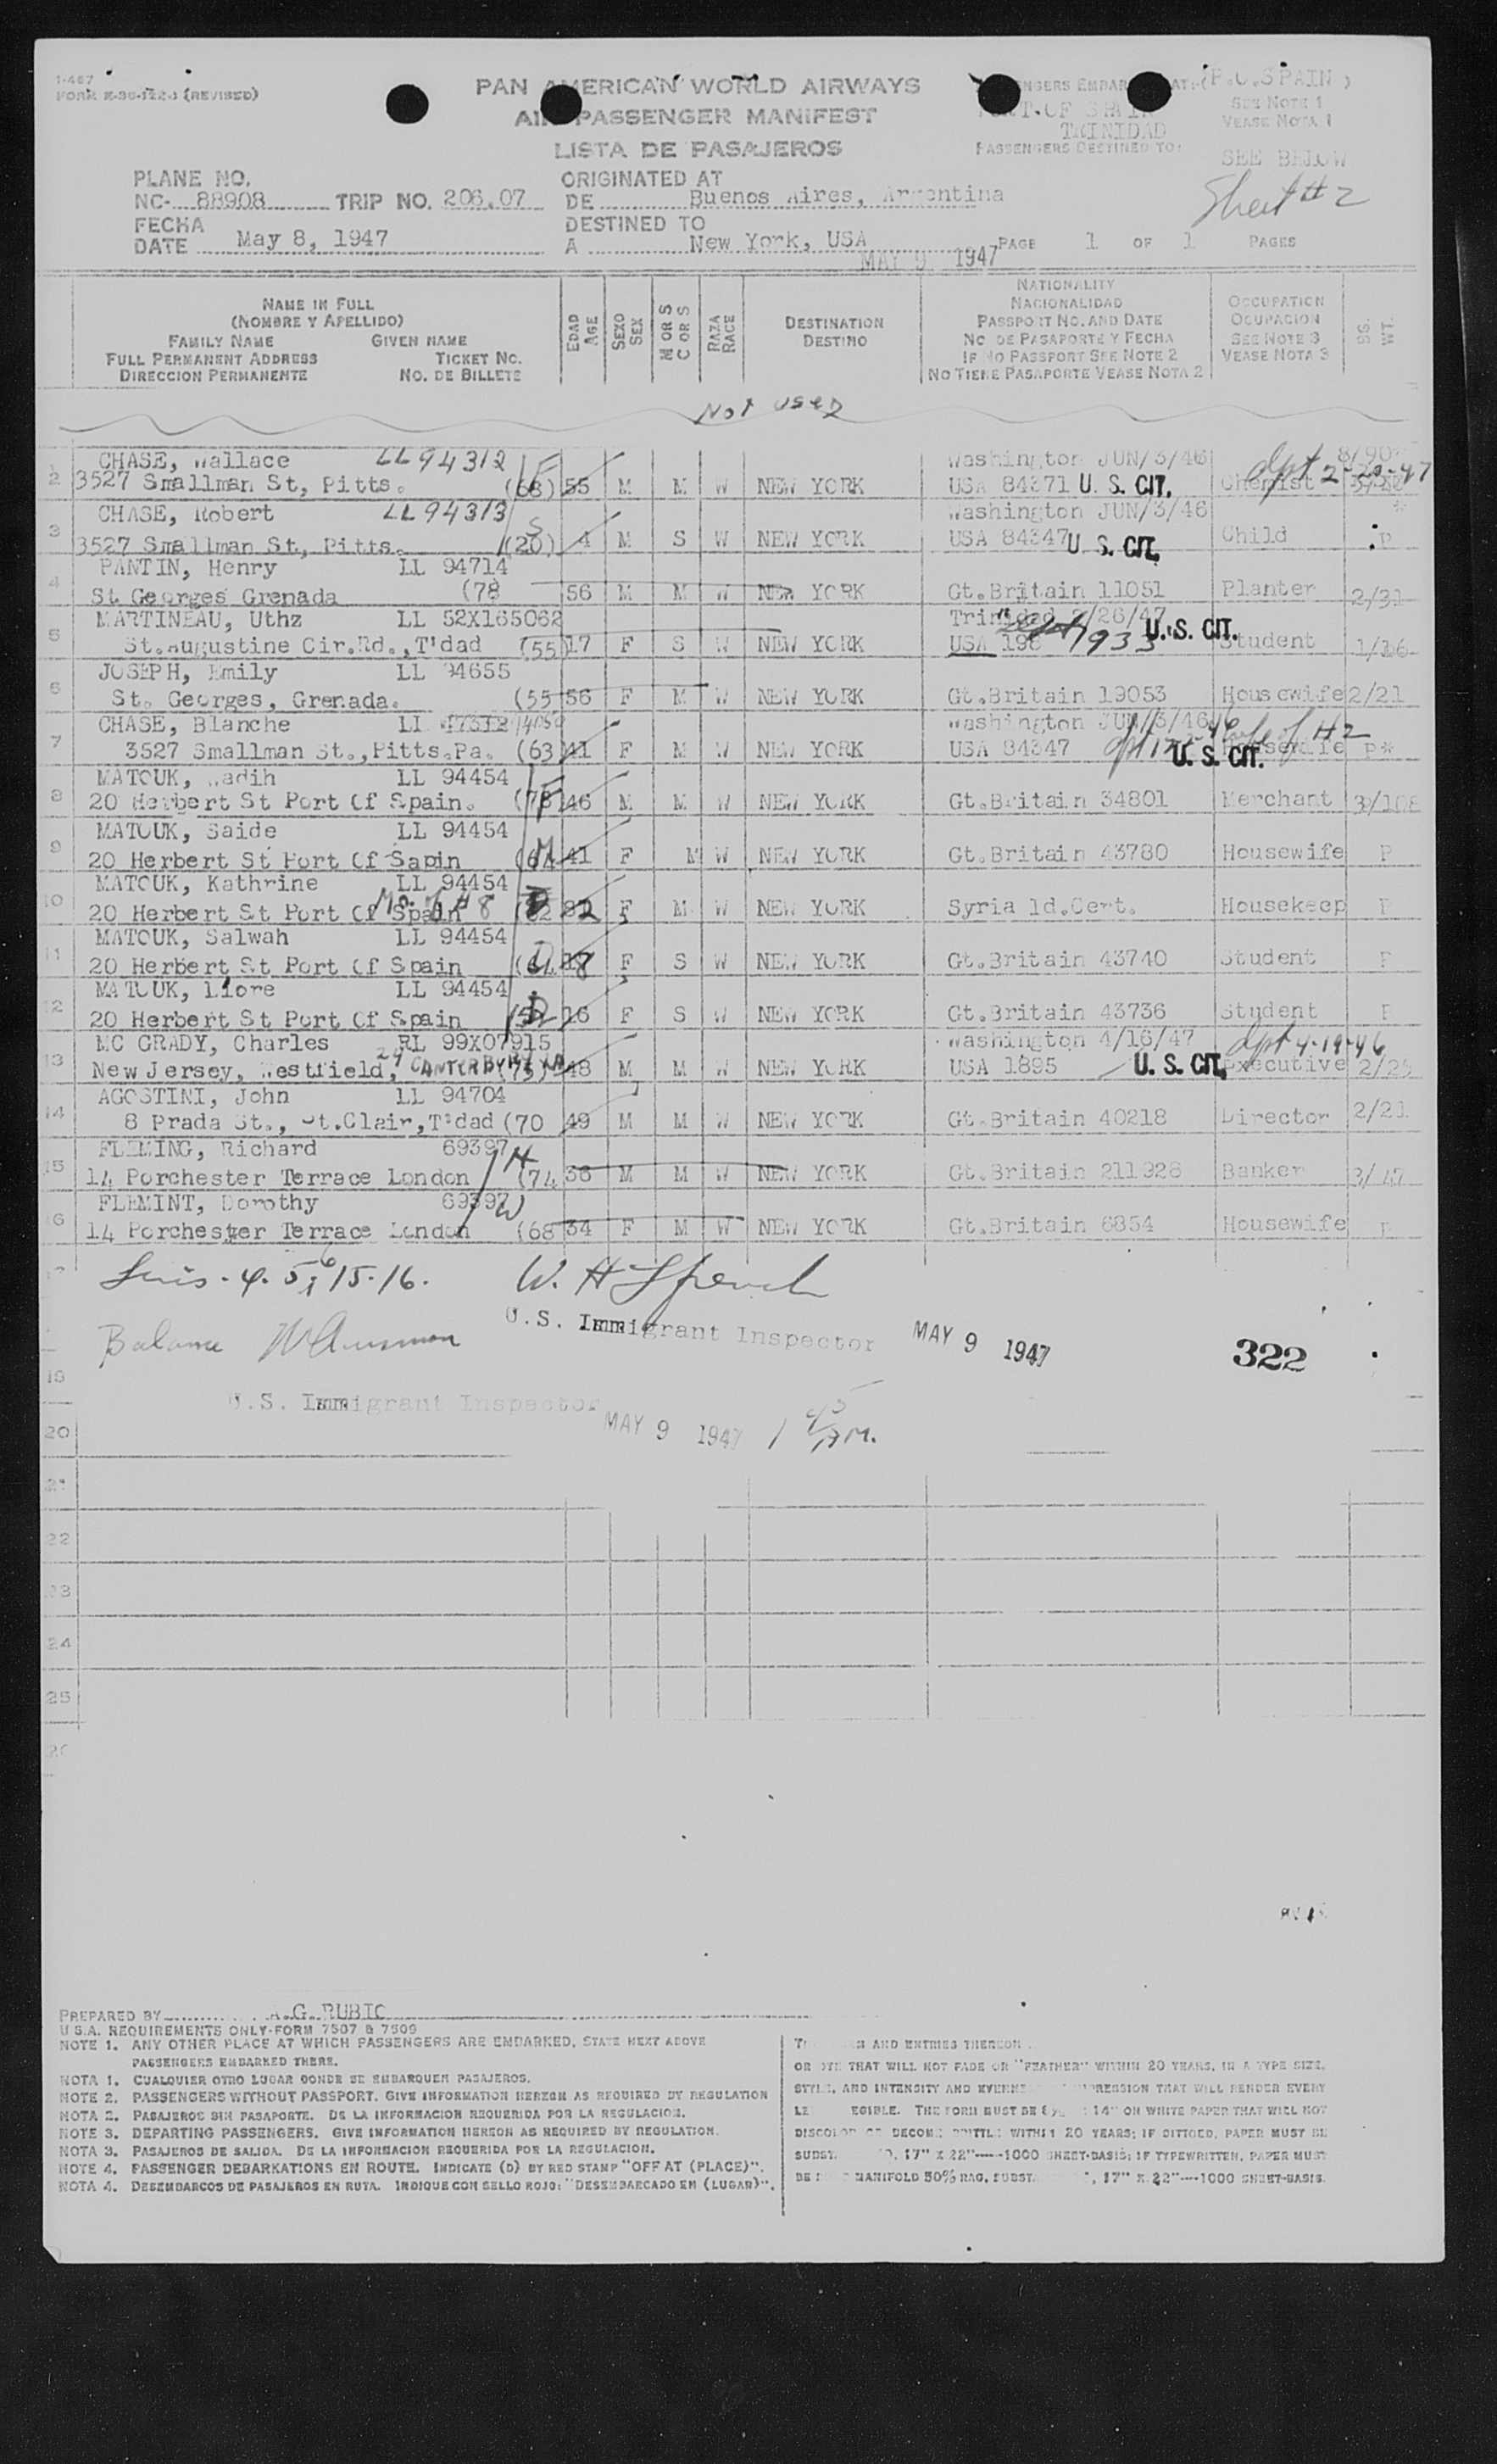 I-467
FORM (REVISED)
PAN AMERICAN WORLD AIRWAYS
AIR PASSENGER MANIFEST
LISTA DE PASAJEROS
(P.O.SPAIN)
TRINIDAD
PASSENGERS DESTINED TO:
SEE NOTE 1
VEASE NOTA 1
SEE BELOW
Sheet #2
PLANE NO.
NC- 88908 TRIP NO. 206.07
ORIGINATED AT
DE Buenos Aires, Argentina
FECHA
DATE May 8, 1947
DESTINED TO
A New York, USA
MAY 9 1947
PAGE 1 OF 1 PAGES
NAME IN FULL
(NOMBRE Y APELLIDO)
FAMILY NAME GIVEN NAME
FULL PERMANENT ADDRESS TICKET NO.
DIRECCION PERMANENTE NO. DE BILLETE
EDAD AGE
SEXO SEX
M OR S C OR S
RAZA RACE
DESTINATION
DESTINO
NATIONALITY
NACIONALIDAD
PASSPORT NO. AND DATE
NO DE PASAPORTE Y FECHA
IF NO PASSPORT SEE NOTE 2
NO TIENE PASAPORTE VEASE NOTA 2
OCCUPATION
OCUPACION
SEE NOTE 3
VEASE NOTA 3
WT.
Not used
CHASE, Wallace LL94312 Washington JUN/3/46
2 3527 Smallman St, Pitts. (68) 55 M M W NEW YORK USA 84371 U. S. CIT. Chemist dpt 2-20-47
CHASE, Robert LL94313 Washington JUN/3/46
3 3527 Smallman St, Pitts. (20) 4 M S W NEW YORK USA 84347 U. S. CIT. Child P
PANTIN, Henry LL 94714
4 St Georges Grenada (78 56 M M W NEW YORK Gt.Britain 11051 Planter 2/31
MARTINEAU, Uthz LL 52X165062 Trinidad 2/26/47
5 St.Augustine Cir.Rd.,T'dad (55 17 F S W NEW YORK USA 1933 U. S. CIT. Student 1/16
JOSEPH, Emily LL 94655
6 St. Georges, Grenada. (55 56 F M W NEW YORK Gt.Britain 19053 Housewife 2/21
CHASE, Blanche LL Washington JUN/3/46 wife of #2
7 3527 Smallman St.,Pitts.Pa. (63 41 F M W NEW YORK USA 84347 U. S. CIT. Housewife P*
MATOUK, Wadih LL 94454
8 20 Herbert St Port Of Spain. (78 46 M M W NEW YORK Gt.Britain 34801 Merchant 3/108
MATOUK, Saide LL 94454
9 20 Herbert St Port Of Sapin (64 41 F M W NEW YORK Gt.Britain 43780 Housewife P
MATOUK, Kathrine LL 94454
10 20 Herbert St Port Of Spain Mo. of #8 82 F M W NEW YORK Syria Id.Cert. Housekeep P
MATOUK, Salwah LL 94454
11 20 Herbert St Port Of Spain 18 F S W NEW YORK Gt.Britain 43740 Student P
MATOUK, Liore LL 94454
12 20 Herbert St Port Of Spain 16 F S W NEW YORK Gt.Britain 43736 Student P
MC GRADY, Charles RL 99X07915 Washington 4/16/47 dpt 4-19-46
13 New Jersey, Westfield, 24 CANTERBURY LA (75) 48 M M W NEW YORK USA 1895 U. S. CIT. Executive 2/25
AGOSTINI, John LL 94704
14 8 Prada St., St.Clair,T'dad (70 49 M M W NEW YORK Gt.Britain 40218 Director 2/21
FLEMING, Richard 69397 H
15 14 Porchester Terrace London (74 36 M M W NEW YORK Gt.Britain 211928 Banker 3/47
FLEMINT, Dorothy 69397 W
16 14 Porchester Terrace London (68 34 F M W NEW YORK Gt.Britain 6854 Housewife P
4. 5, 6 15-16.
U.S. Immigrant Inspector MAY 9 1947
322
Balance
19
U.S. Immigrant Inspector
MAY 9 1947 1 45 AM.
20
21
22
23
24
25
PREPARED BY A.G.RUBIO
U S.A. REQUIREMENTS ONLY-FORM 7507 & 7509
NOTE 1. ANY OTHER PLACE AT WHICH PASSENGERS ARE EMBARKED, STATE NEXT ABOVE
PASSENGERS EMBARKED THERE.
NOTA 1. CUALQUIER OTRO LUGAR DONDE SE EMBARQUEN PASAJEROS.
NOTE 2. PASSENGERS WITHOUT PASSPORT. GIVE INFORMATION HEREON AS REQUIRED BY REGULATION
NOTA 2. PASAJEROS SIN PASAPORTE. DE LA INFORMACION REQUERIDA POR LA REGULACION.
NOTE 3. DEPARTING PASSENGERS. GIVE INFORMATION HEREON AS REQUIRED BY REGULATION.
NOTA 3. PASAJEROS DE SALIDA. DE LA INFORMACION REQUERIDA POR LA REGULACION.
NOTE 4. PASSENGER DEBARKATIONS EN ROUTE. INDICATE (D) BY RED STAMP "OFF AT (PLACE)".
NOTA 4. DESEMBARCOS DE PASAJEROS EN RUTA. INDIQUE CON SELLO ROJO: "DESEMBARCADO EN (LUGAR)".
AND ENTRIES THEREON
OR DYE THAT WILL NOT FADE OR "FEATHER" WITHIN 20 YEARS, IN A TYPE SIZE,
STYLE, AND INTENSITY AND IMPRESSION THAT WILL RENDER EVERY
THE FORM MUST BE 14" ON WHITE PAPER THAT WILL NOT
DISCOLOR OR BECOME BRITTLE WITHIN 20 YEARS; IF DITTOED, PAPER MUST BE
SUBST. 17" X 22"-----1000 SHEET-BASIS; IF TYPEWRITTEN, PAPER MUST
BE MANIFOLD 50% RAG, SUBST. , 17" X 22"----1000 SHEET-BASIS.